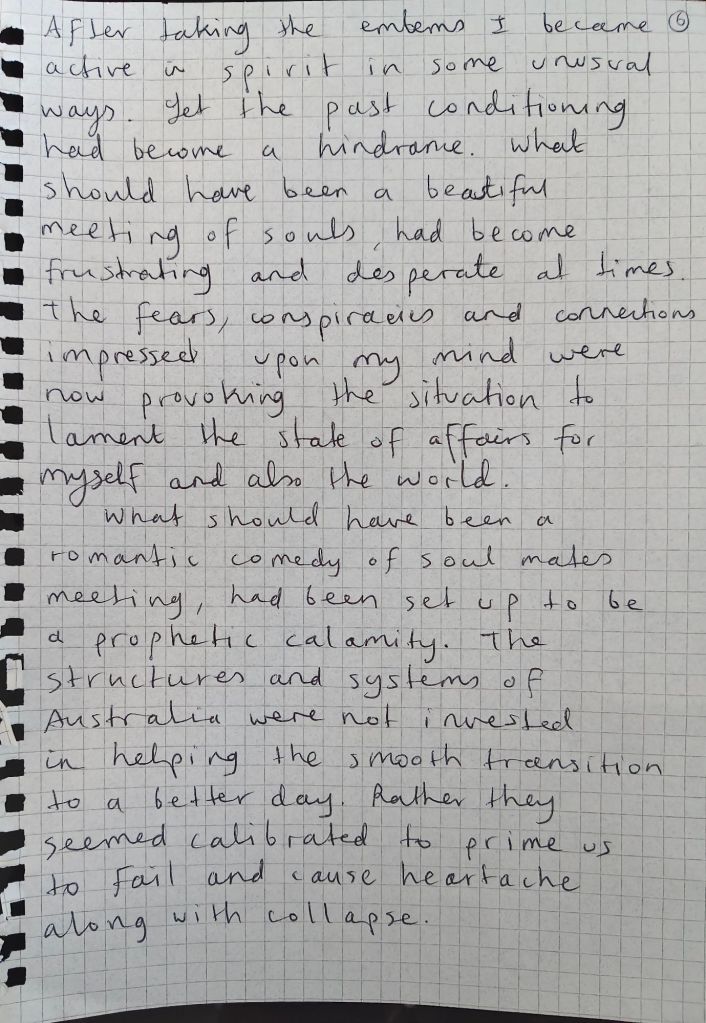 After taking the embems I became ⑥
active in spirit in some unusual
ways. Yet the past conditioning
had become a hindrance. What
should have been a beautiful
meeting of souls, had become
frustrating and desperate at times.
The fears, conspiracies and connections
impressed upon my mind were
now provoking the situation to
lament the state of affairs for
myself and also the world.
What should have been a
romantic comedy of soul mates
meeting, had been set up to be
a prophetic calamity. The
structures and systems of
Australia were not invested
in helping the smooth transition
to a better day. Rather they
seemed calibrated to prime us
to fail and cause heartache
along with collapse.